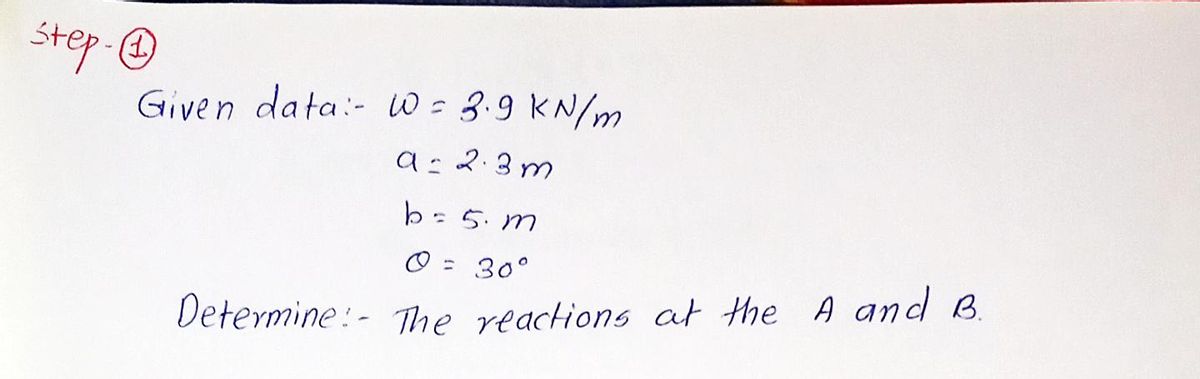 Step-①
Given data:- w = 3.9 KN/m
a = 2.3 m
b = 5. m
θ = 30°
Determine:- The reactions at the A and B.